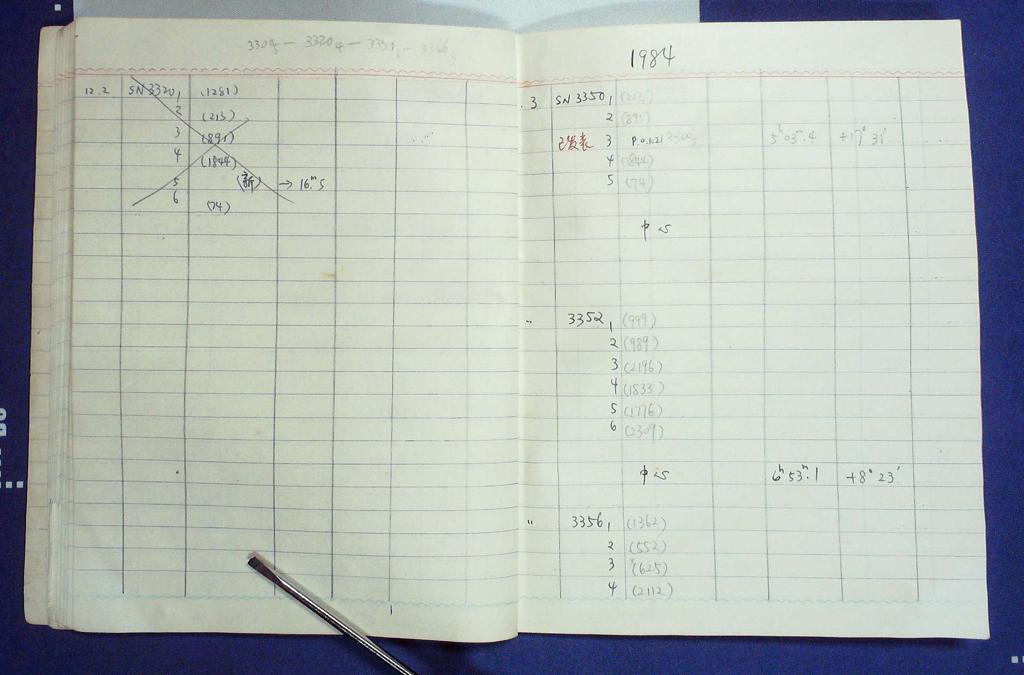 3309₅ — 3320₄ — 3350₅ — 3366₅
12.2 SN 3320, 1 (1281)
2 (213)
3 (891)
4 (1844)
5 (新) → 16.ᵐ5
6 (74)
1984
3 SN 3350, 1 (213)
2 (891)
已发表 3 P.O.1.21 5ʰ03ᵐ.4 +17°31′
4 (1844)
5 (74)
中心
〃 3352, 1 (999)
2 (989)
3 (2196)
4 (1833)
5 (1776)
6 (2309)
中心 6ʰ53ᵐ.1 +8°23′
〃 3356, 1 (1362)
2 (552)
3 (625)
4 (2112)